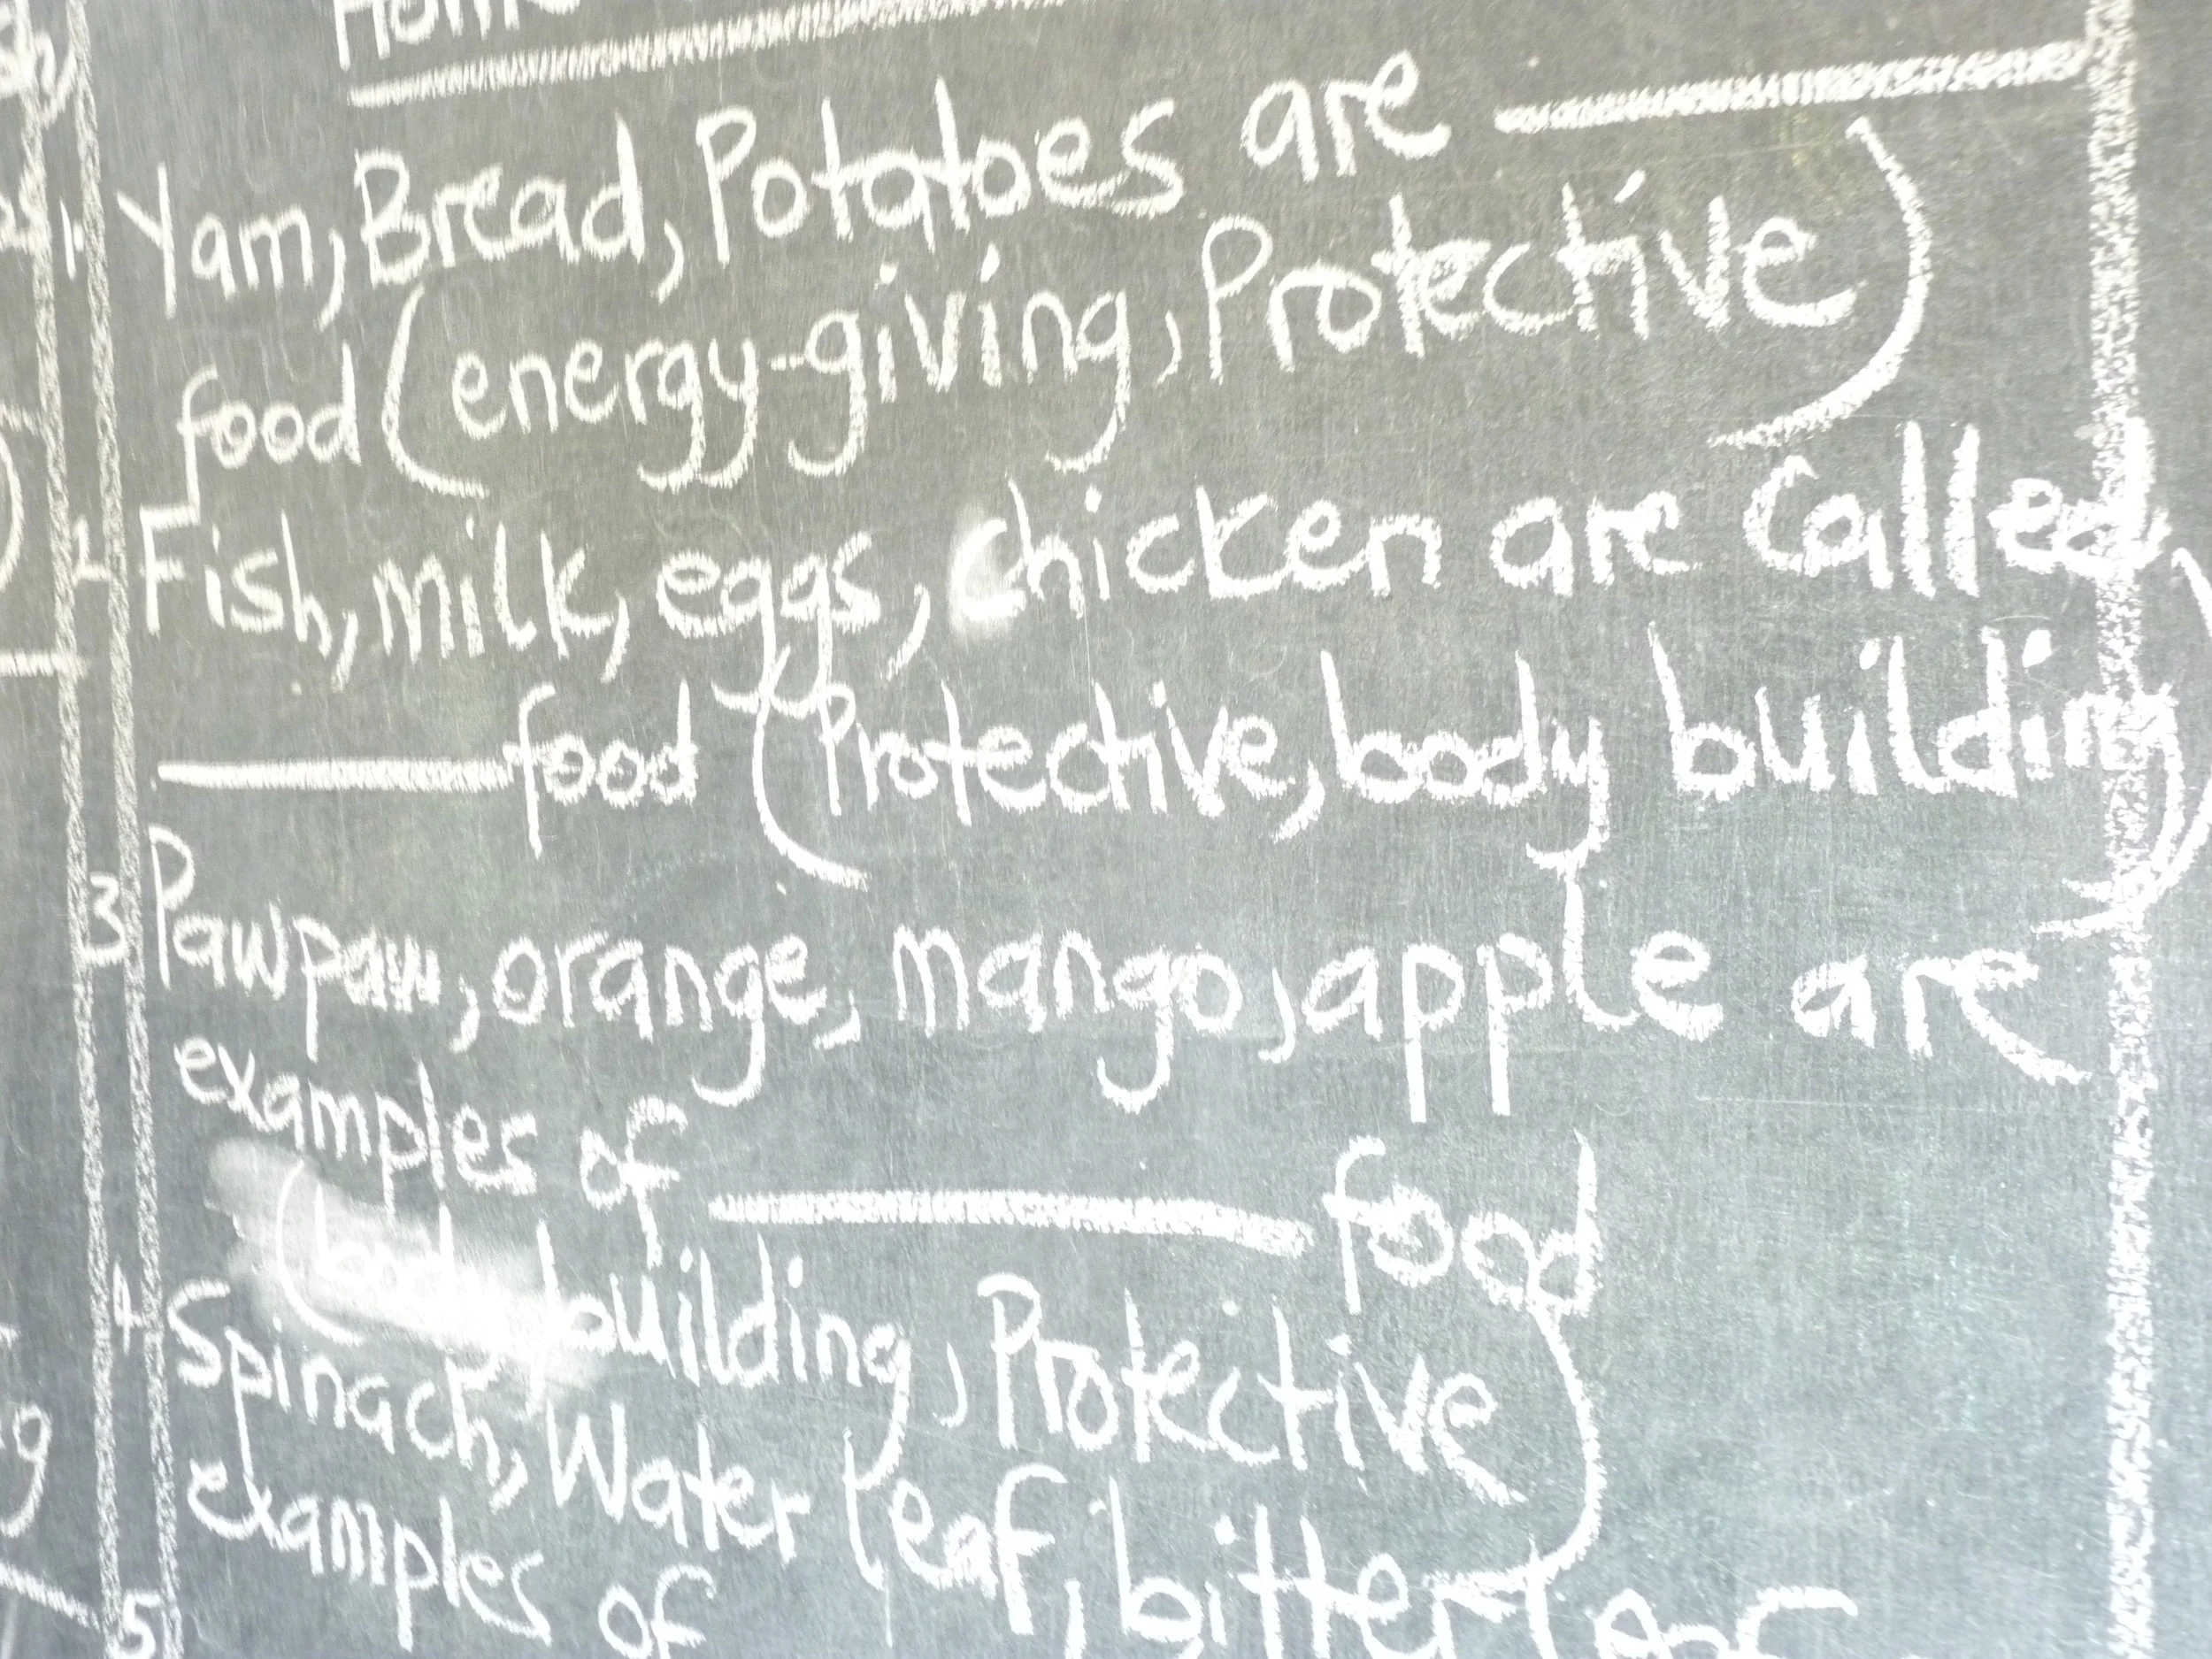 1. Yam, Bread, Potatoes are
food (energy-giving, Protective)
2 Fish, milk, eggs, chicken are called
food (Protective, body building)
3 Pawpaw, orange, mango, apple are
examples of food
(body building, Protective)
4 Spinach, Water leaf, bitter leaf
examples of
5